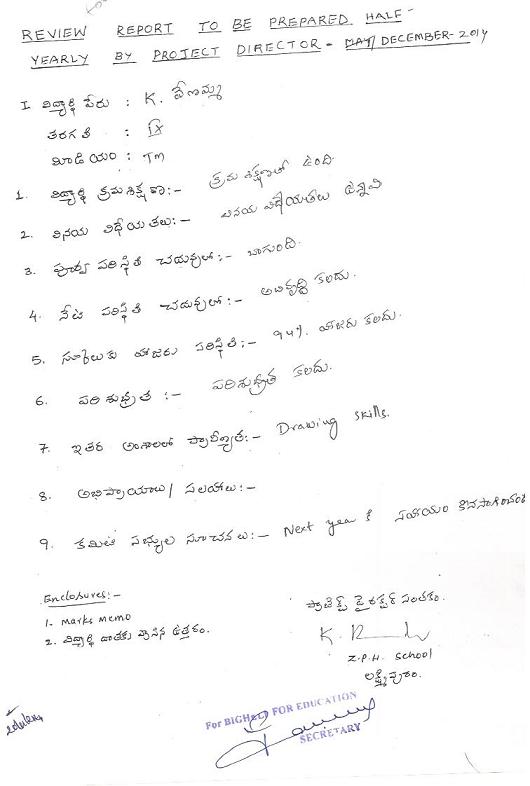 REVIEW REPORT TO BE PREPARED HALF-
YEARLY BY PROJECT DIRECTOR - MAY/DECEMBER-2014
I. విద్యార్థి పేరు : K. వేణమ్మ
తరగతి : IX
మీడియం : TM
1. విద్యార్థి క్రమశిక్షణ :- క్రమశిక్షణతో ఉంది.
2. వినయ విధేయతలు:- వినయ విధేయతలు ఉన్నవి
3. పూర్వ పరిస్థితి చదువులో :- బాగుంది.
4. నేటి పరిస్థితి చదువులో :- అభివృద్ధి కలదు.
5. స్కూలుకు హాజరు పరిస్థితి :- 94%. హాజరు కలదు.
6. పరిశుభ్రత :- పరిశుభ్రత కలదు.
7. ఇతర అంశాలలో ప్రావీణ్యత:- Drawing skills.
8. అభిప్రాయాలు/ సలహాలు:-
9. కమిటి సభ్యుల సూచనలు:- Next year కి సహాయం కొనసాగించండి
Enclosures:-
1. Marks memo
2. విద్యార్థి దాతకు వ్రాసిన ఉత్తరం.
ప్రాజెక్ట్ డైరక్టర్ సంతకం.
Z.P.H. School
లక్ష్మీపురం.
For BIGHELP FOR EDUCATION
SECRETARY